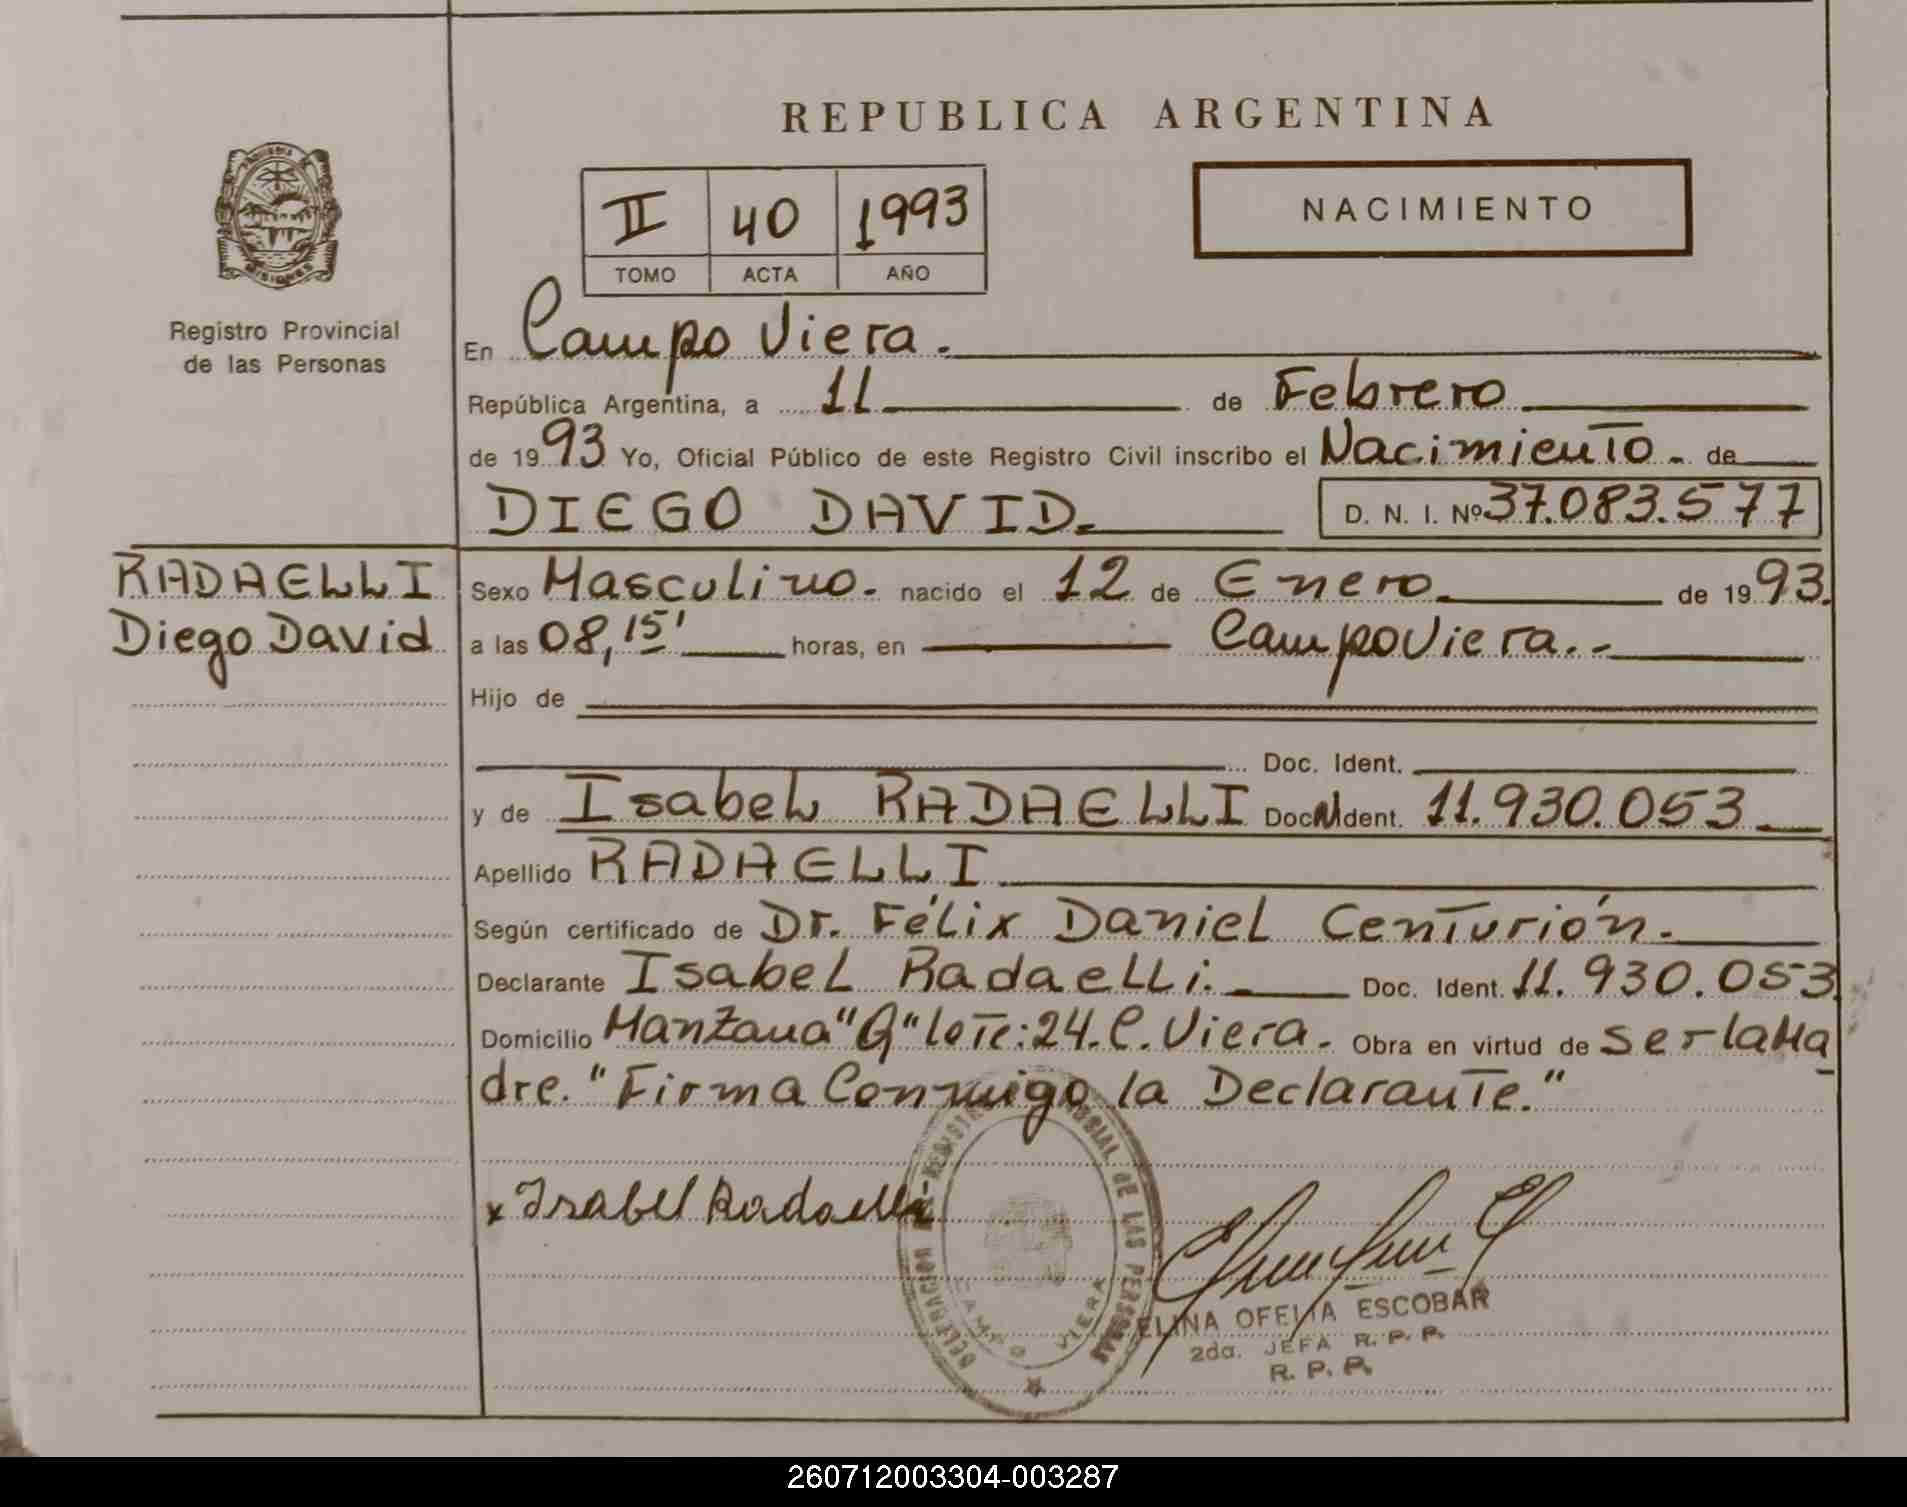 REPUBLICA ARGENTINA
PROVINCIA DE
MISIONES
Registro Provincial
de las Personas
II 40 1993
TOMO ACTA AÑO
NACIMIENTO
En Campo Viera.
República Argentina, a 11 de Febrero
de 1993 Yo, Oficial Público de este Registro Civil inscribo el Nacimiento. de
DIEGO DAVID. D. N. I. Nº 37.083.577
RADAELLI
Diego David
Sexo Masculino. nacido el 12 de Enero. de 1993.
a las 08,15' horas, en Campo Viera.-
Hijo de
Doc. Ident.
y de Isabel RADAELLI Doc. Ident. 11.930.053
Apellido RADAELLI
Según certificado de Dr. Félix Daniel Centurión.
Declarante Isabel Radaelli. Doc. Ident. 11.930.053
Domicilio Manzana "G" lote: 24. C. Viera. Obra en virtud de ser la Ma
dre. "Firma Conmigo la Declarante."
x Isabel Radaelli
DELEGACION DE LAS PERSONAS
CAMPO VIERA
ELINA OFELIA ESCOBAR
2da. JEFA R. P. P.
R. P. P.
260712003304-003287